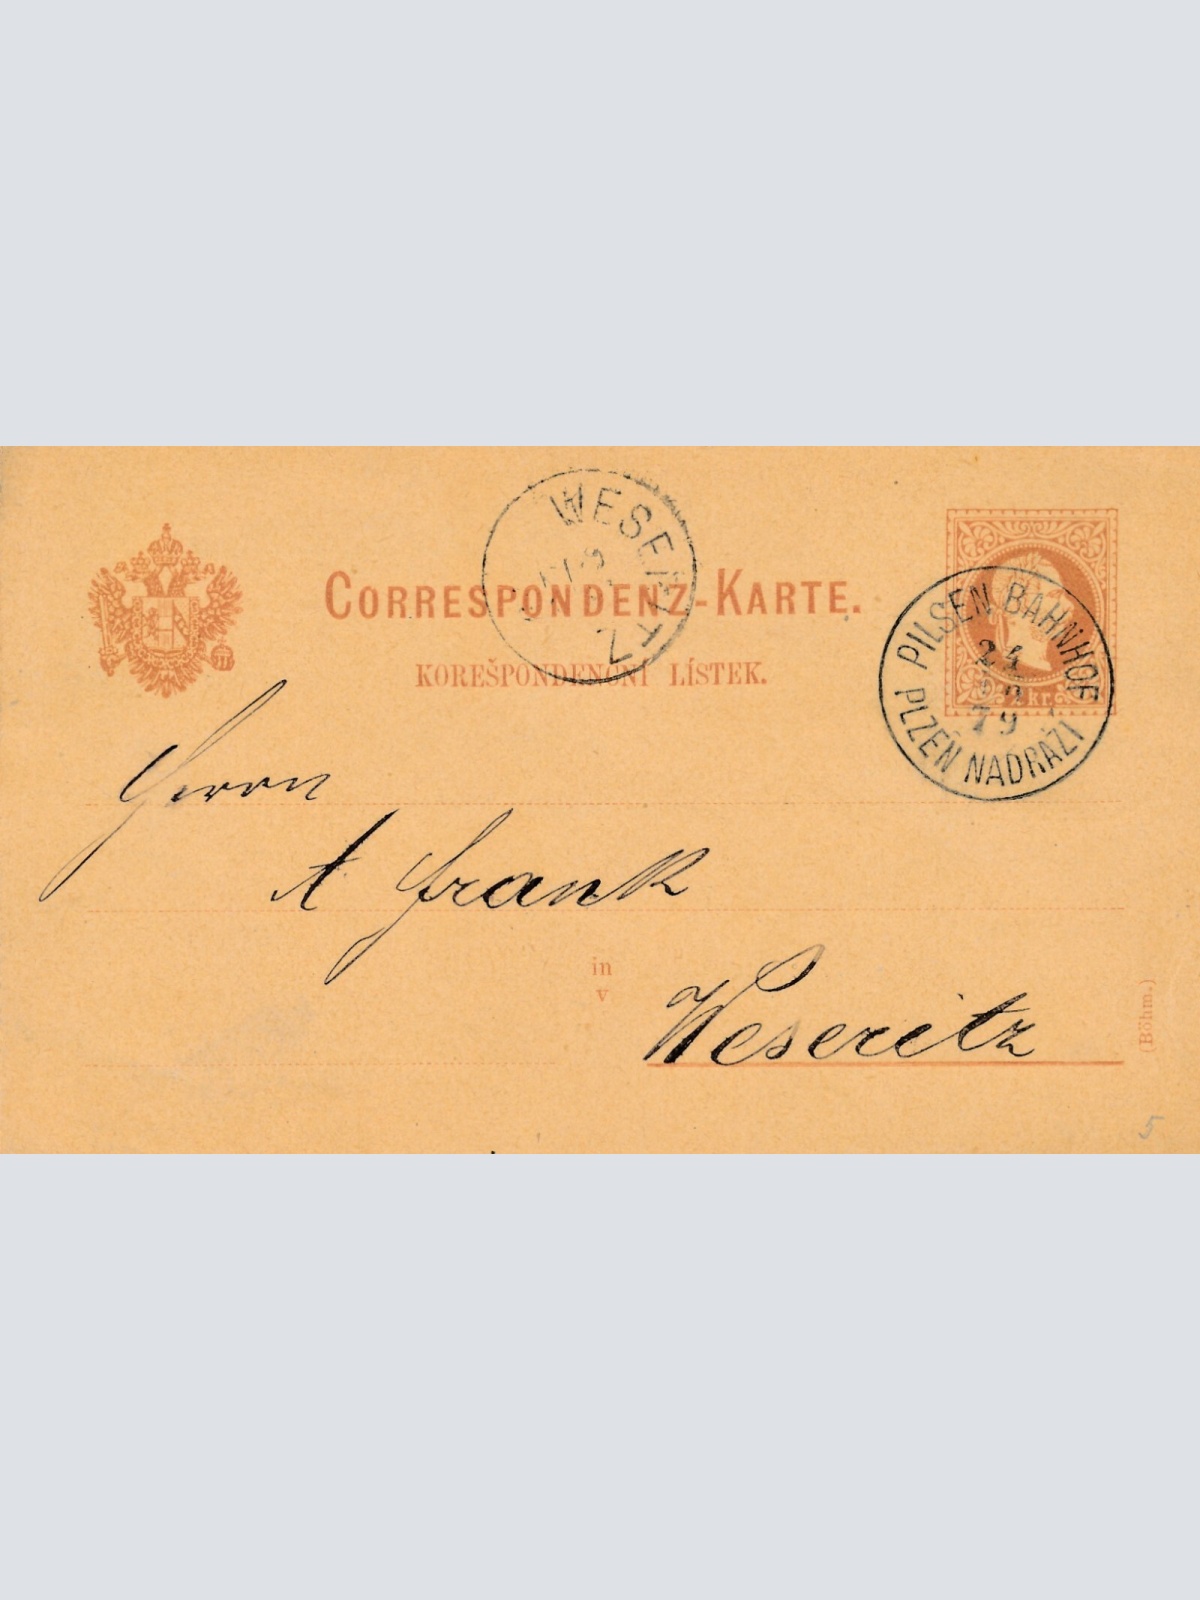 WESERITZ
CORRESPONDENZ-KARTE.
KOREŠPONDENČNÍ LÍSTEK.
2 kr.
PILSEN BAHNHOF
24
79
PLZEŇ NADRAŽI
Herrn
A Frank
in
v
Weseritz
(Böhm.)
5